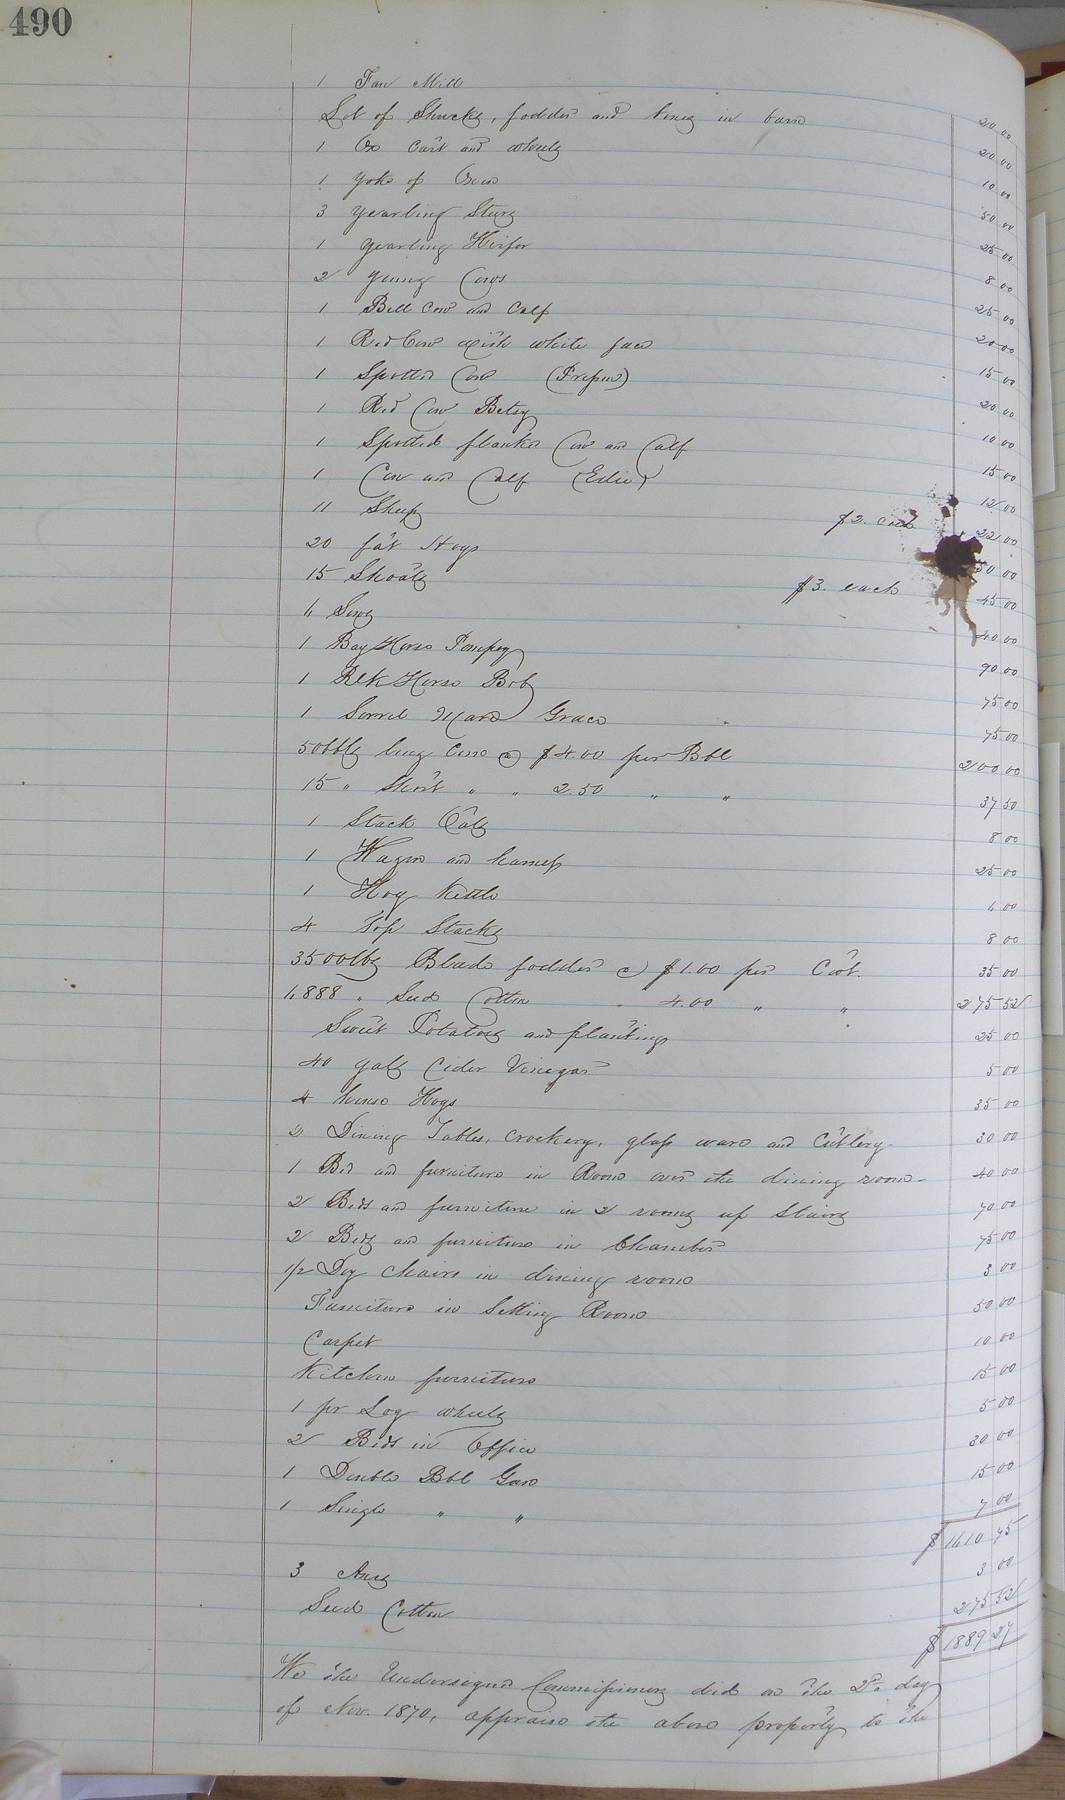 490
1 Fan Mill 20 00
Lot of Shucks, fodder and hay in barn 20 00
1 Ox Cart and wheels 10 00
1 yoke of Oxen 50 00
3 yearling Steers 25 00
1 yearling Heifer 8 00
2 young Cows 25 00
1 Bell Cow and Calf 20 00
1 Red Cow with white face 15 00
1 Spotted Cow 20 00
1 Red Cow Betsy 10 00
1 Spotted flanked Cow and Calf 15 00
1 Cow and Calf 12 00
11 Sheep $2. each 22 00
20 fat Hogs 00
15 Shoats $3. each 45 00
Sows 40 00
1 Bay Horse Pompey 90 00
1 Blk Horse Bob 75 00
1 Sorrel Mare Grace 75 00
50 bbls long Corn @ $4.00 per Bbl 200 00
15 " Short " " 2.50 " " 37 50
1 Stack Oats 8 00
1 Wagon and harness 25 00
1 Hog Kettle 00
4 Top Stacks 8 00
3500 lbs Blade fodder @ $1.00 per Cwt. 35 00
6888 " Seed Cotton " 4.00 " " 275 52
Sweet Potatoes and plantings 25 00
40 galls Cider Vinegar 5 00
4 house Hogs 35 00
2 Dining Tables, Crockery, glass ware and Cutlery. 30 00
1 Bed and furniture in Room over the dining room. 40 00
2 Beds and furniture in 2 rooms up Stairs 70 00
2 Beds and furniture in Chamber 75 00
1/2 Doz chairs in dining room 3 00
Furniture in Setting Room 50 00
Carpet 10 00
Kitchen furniture 15 00
1 pr Log wheels 5 00
2 Beds in Office 30 00
1 Double Bbl Gun 15 00
1 Single " " 7 00
$1610 75
3 Axes 3 00
Seed Cotton 275 52
$1889 27
We the Undersigned Commissioners did on the 2d. day
of Nov. 1870, appraise the above property to the